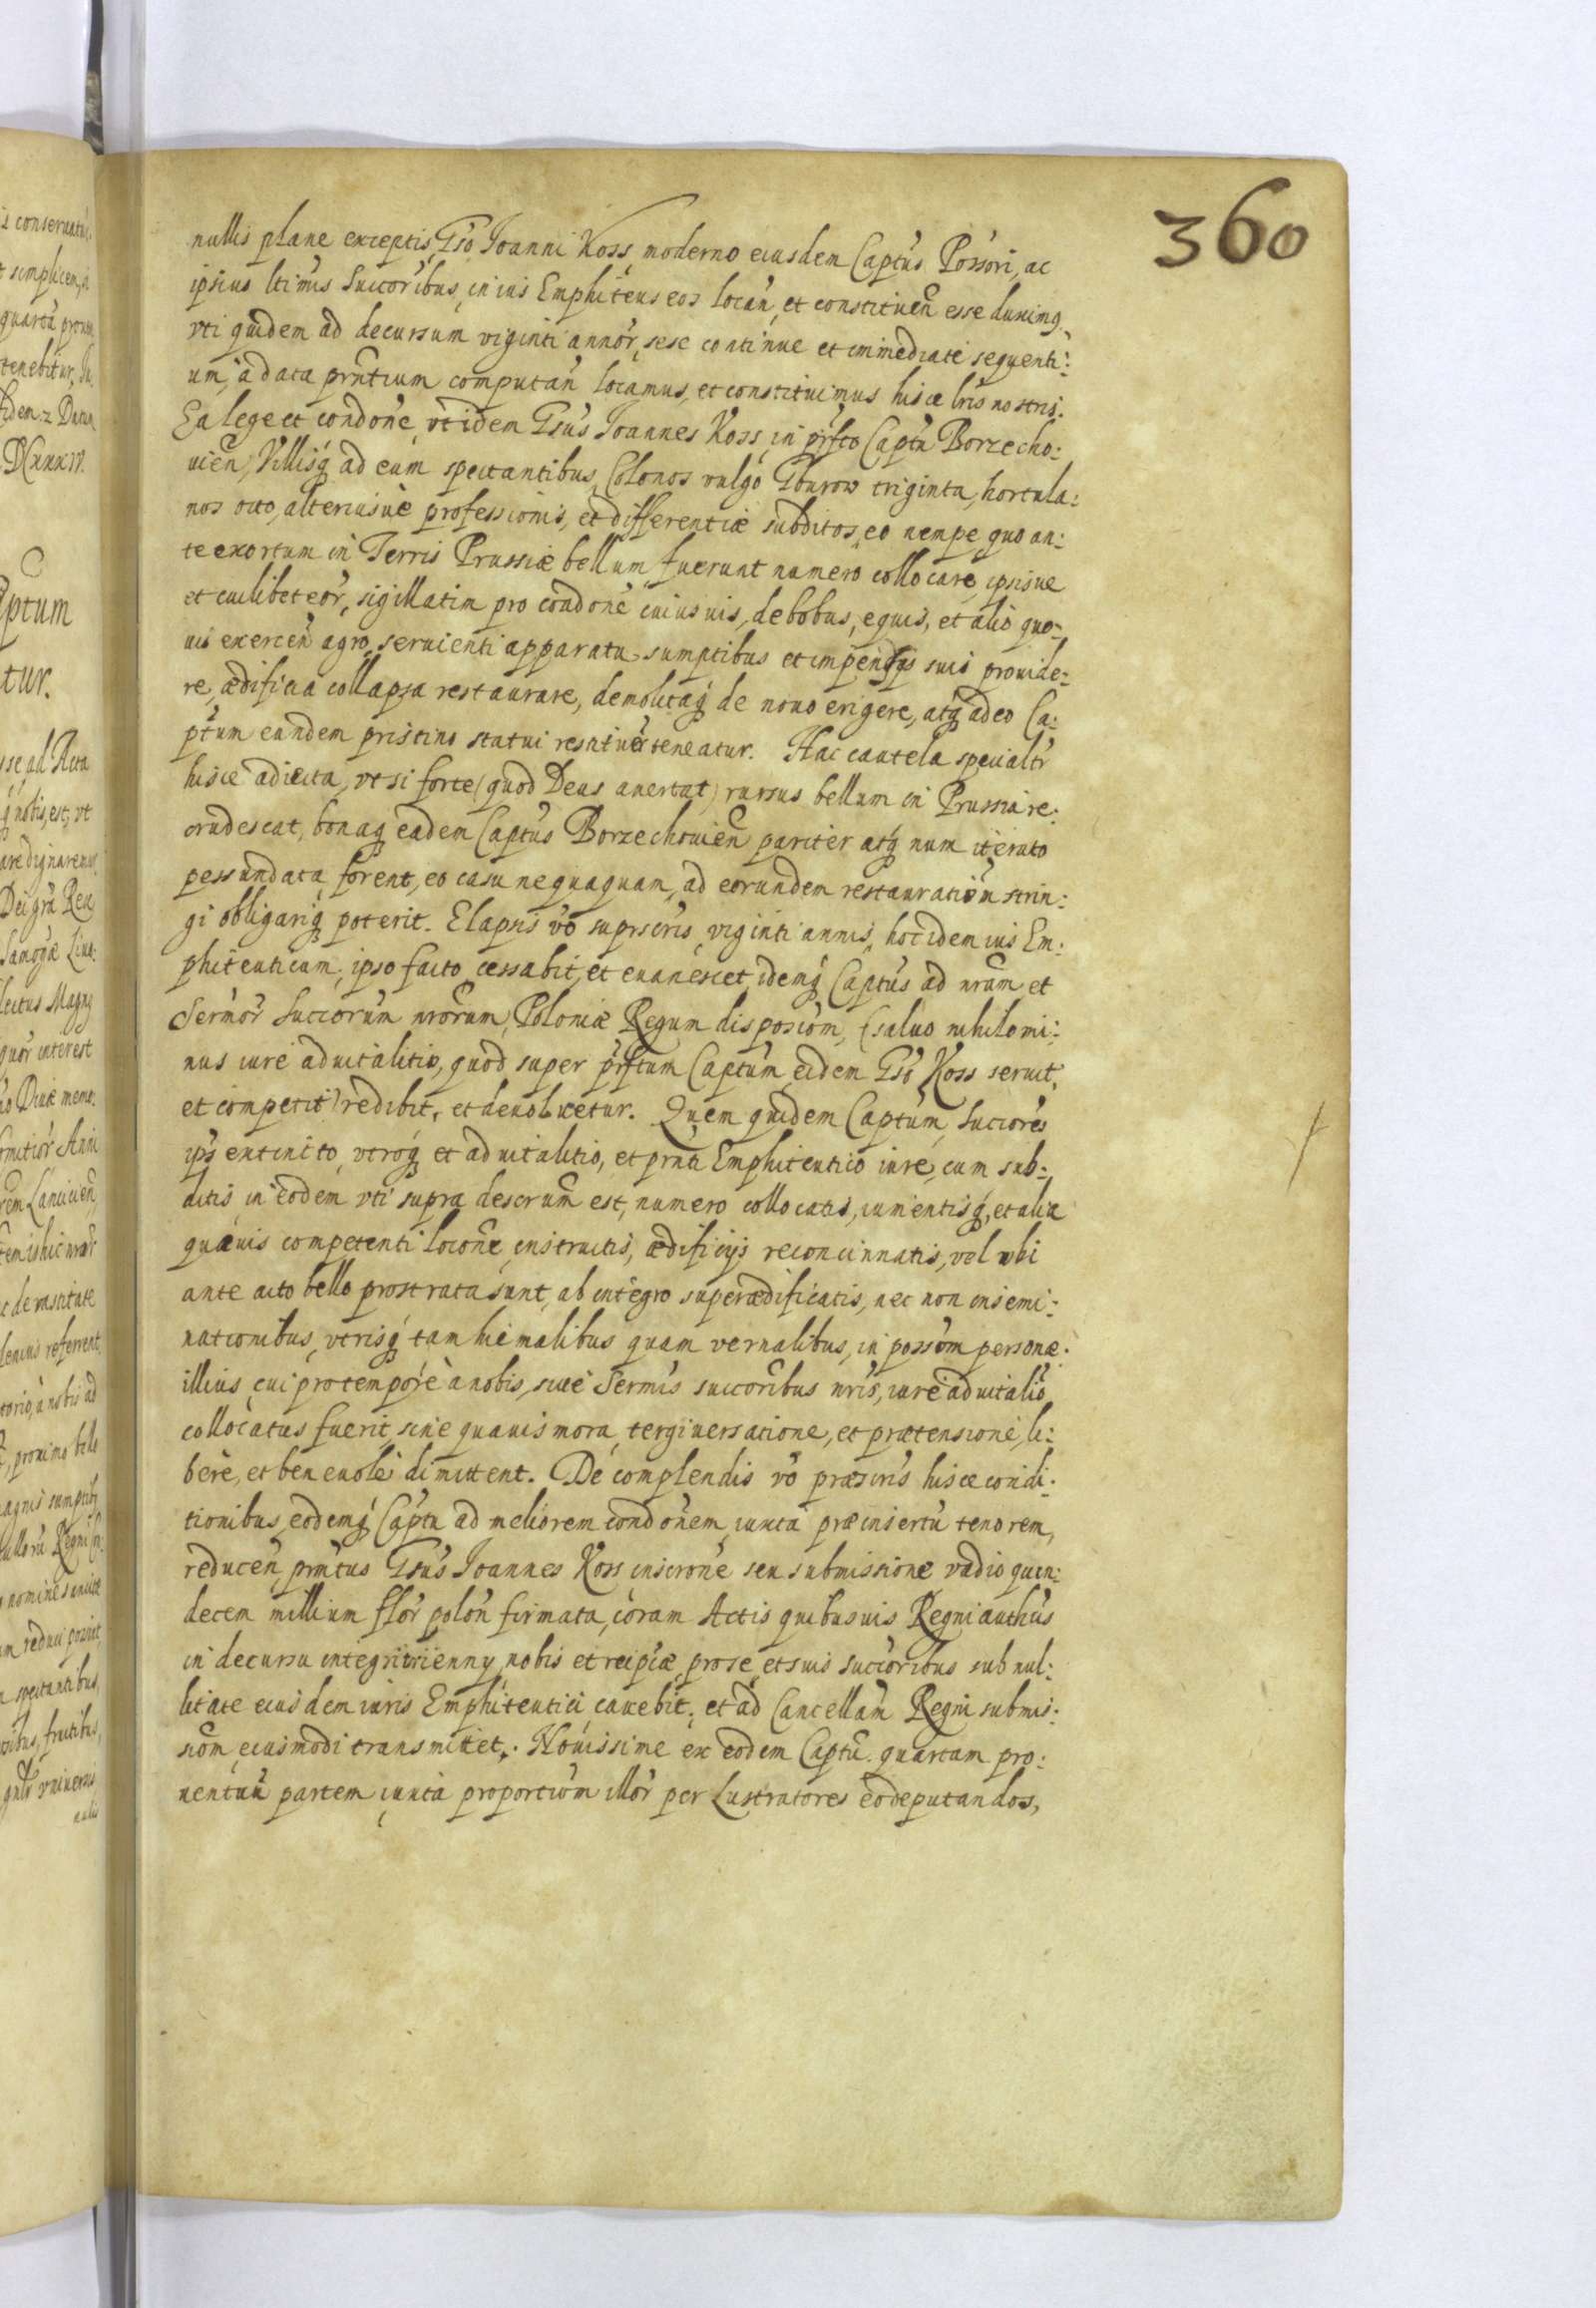 360
nullis plane exceptis, Gso Joanni Koss, moderno eiusdem Captus Possori, ac
ipsius ltimis Succoribus, in ius Emphiteus eos locan, et constituen esse duximq,
vti quidem ad decursum viginti annor, sese continue et immediate sequenti:
um, à data prntium computan locamus, et constituimus hisce lris nostris.
Ea lege et condone, vt idem Gsus Joannes Koss, in prfcto Captu Borzecho:
uien, Villisq ad eam spectantibus, Colonos vulgo Gburow triginta, hortula:
nos octo, alteriusue professionis, et differentiæ subditos, eo nempe quo an:
te exortum in Terris Prussiæ bellum fuerunt numero collocare, ipsisue
et cuilibet eor, sigillatim pro condone cuiusuis, de bobus, equis, et alio quo-
uis exercen agro, seruienti apparatu sumptibus et impensis suis prouide:
re, ædificia collapsa restaurare, demolitaq de nouo erigere, atq adeo Ca:
ptum eundem pristino statui restituer teneatur. Hac cautela specialtr
hisce adiecta, vt si forte (quod Deus auertat) rursus bellum in Prussia re:
crudescat, bonaq eadem Captus Borzechouien pariter atq num iterato
pessundata forent, eo casu nequaquam, ad eorundem restauration strin:
gi obligariq poterit. Elapsis vo suprscris viginti annis, hoc idem ius Em:
phiteuticum, ipso facto cessabit, et euanescet, idemq Captus ad nram et
Sermor Succorum nrorum, Poloniæ Regum disposiom, (saluo nihilomi:
nus iure aduitalitio, quod super prfctum Captum, eidem Gso Koss seruit,
et competit) redibit, et deuoluetur. Quem quidem Captum, Succores
ips extincto, vtroq et aduitalitio, et prnti Emphiteutico iure, cum sub:
ditis, in eodem vti supra descrum est, numero collocatis, iumentisq, et alia
quauis competenti locone, instructis, ædificijs reconcinnatis, vel vbi
ante acto bello prostrata sunt, ab integro superædificatis, nec non insemi:
nationibus, vtrisq tam hiemalibus quam vernalibus, in possom personæ
illius cui pro tempore à nobis, siue Sermis succoribus nris, iure aduitalio
collocatus fuerit, sine quauis mora, tergiuersatione, et prætensione, li:
berè, et beneuole dimittent. De complendis vo præscris hisce condi:
tionibus, eodemq Captu ad meliorem condonem, iuxta præinsertu tenorem,
reducen, prntus Gsus Joannes Koss inscrone seu submissione vadio quin:
decem millium flor polon firmata, coram Actis quibusuis Regni authus
in decursu integri trienny, nobis et reipcæ, pro se, et suis succoribus sub nul:
litate eiusdem iuris Emphiteutici cauebit, et ad Cancellam Regni submis:
siom eiusmodi transmittet. Nouissime ex eodem Captu quartam pro:
uentuu partem iuxta proportiom illor per Lustratores eo deputandos,